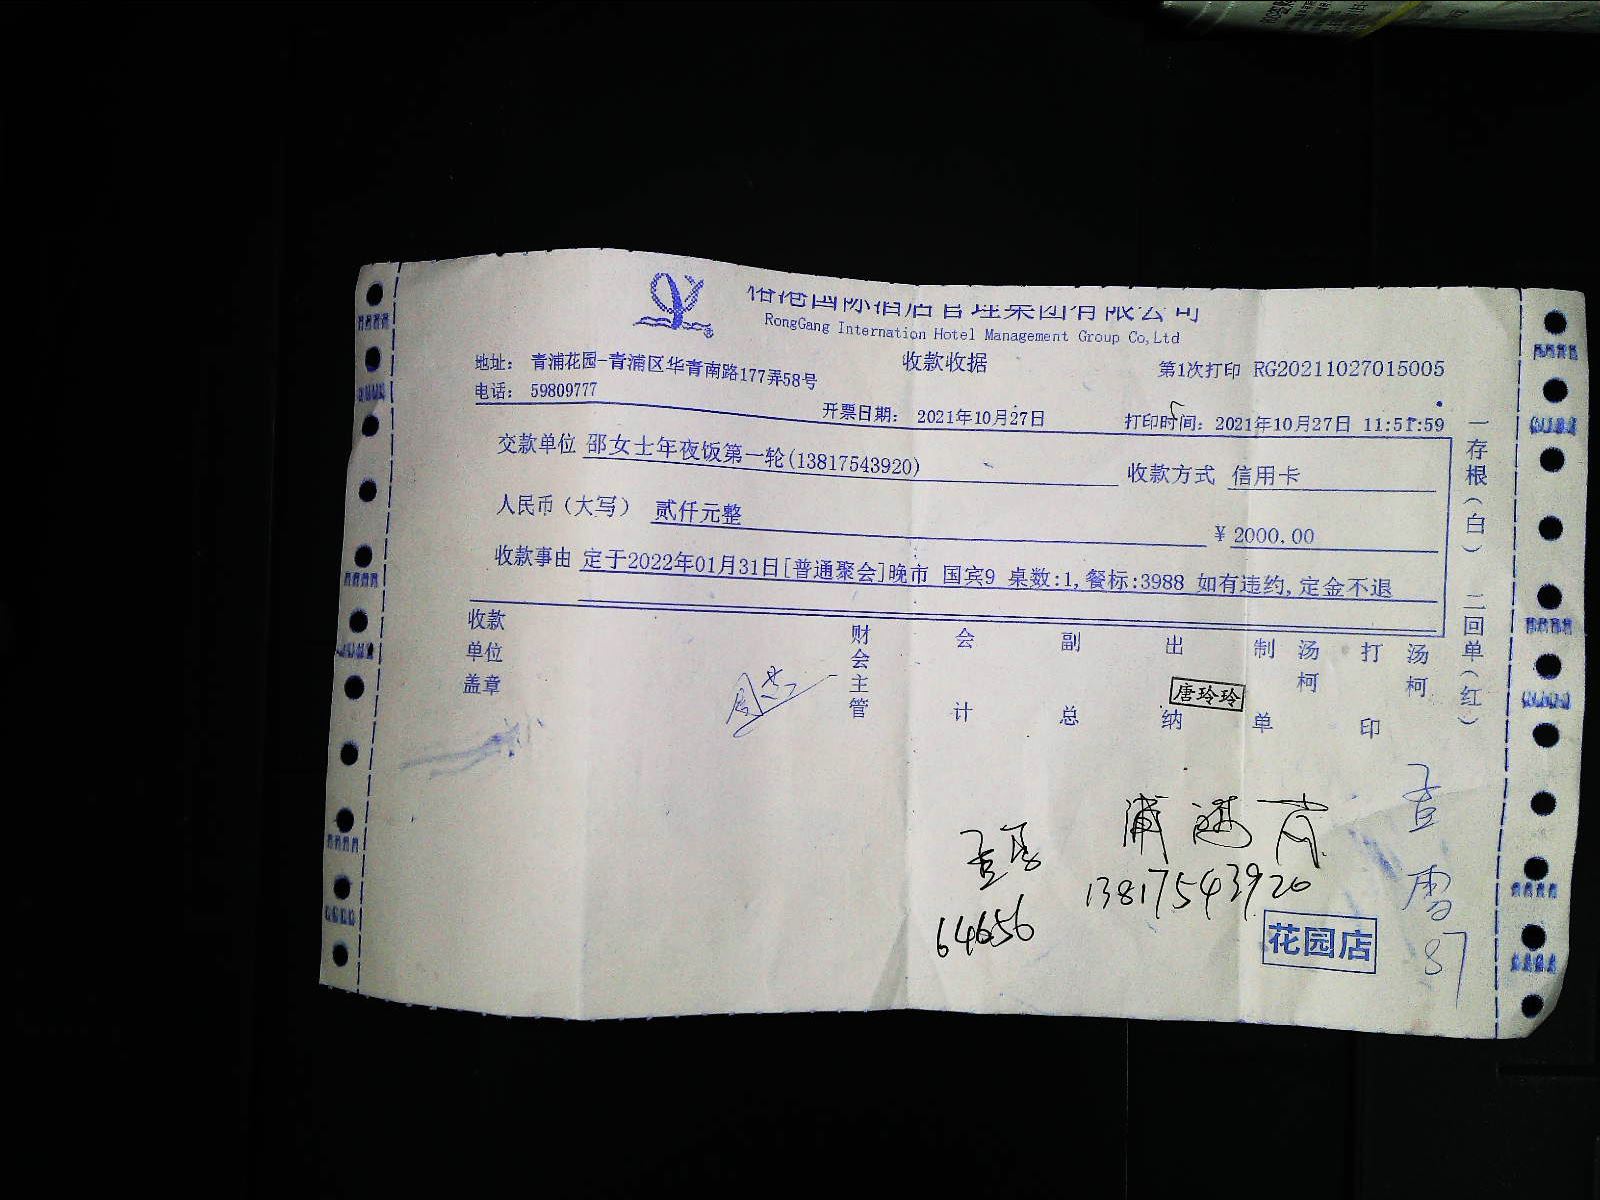 国际酒店管理集团有限公司
RongGang Internation Hotel Management Group Co,Ltd
收款收据
地址： 青浦花园-青浦区华青南路177弄58号
第1次打印 RG20211027015005
电话： 59809777
开票日期： 2021年10月27日
打印时间：2021年10月27日 11:51:59
交款单位 邵女士年夜饭第一轮(13817543920)
收款方式 信用卡
人民币（大写） 贰仟元整
￥2000.00
收款事由 定于2022年01月31日[普通聚会]晚市 国宾9 桌数:1,餐标:3988 如有违约,定金不退
一存根（白） 二回单（红）
收款单位盖章
财会主管
会计
副总
出纳
唐玲玲
制单
汤柯
打印
汤柯
13817543920
64656
花园店
87